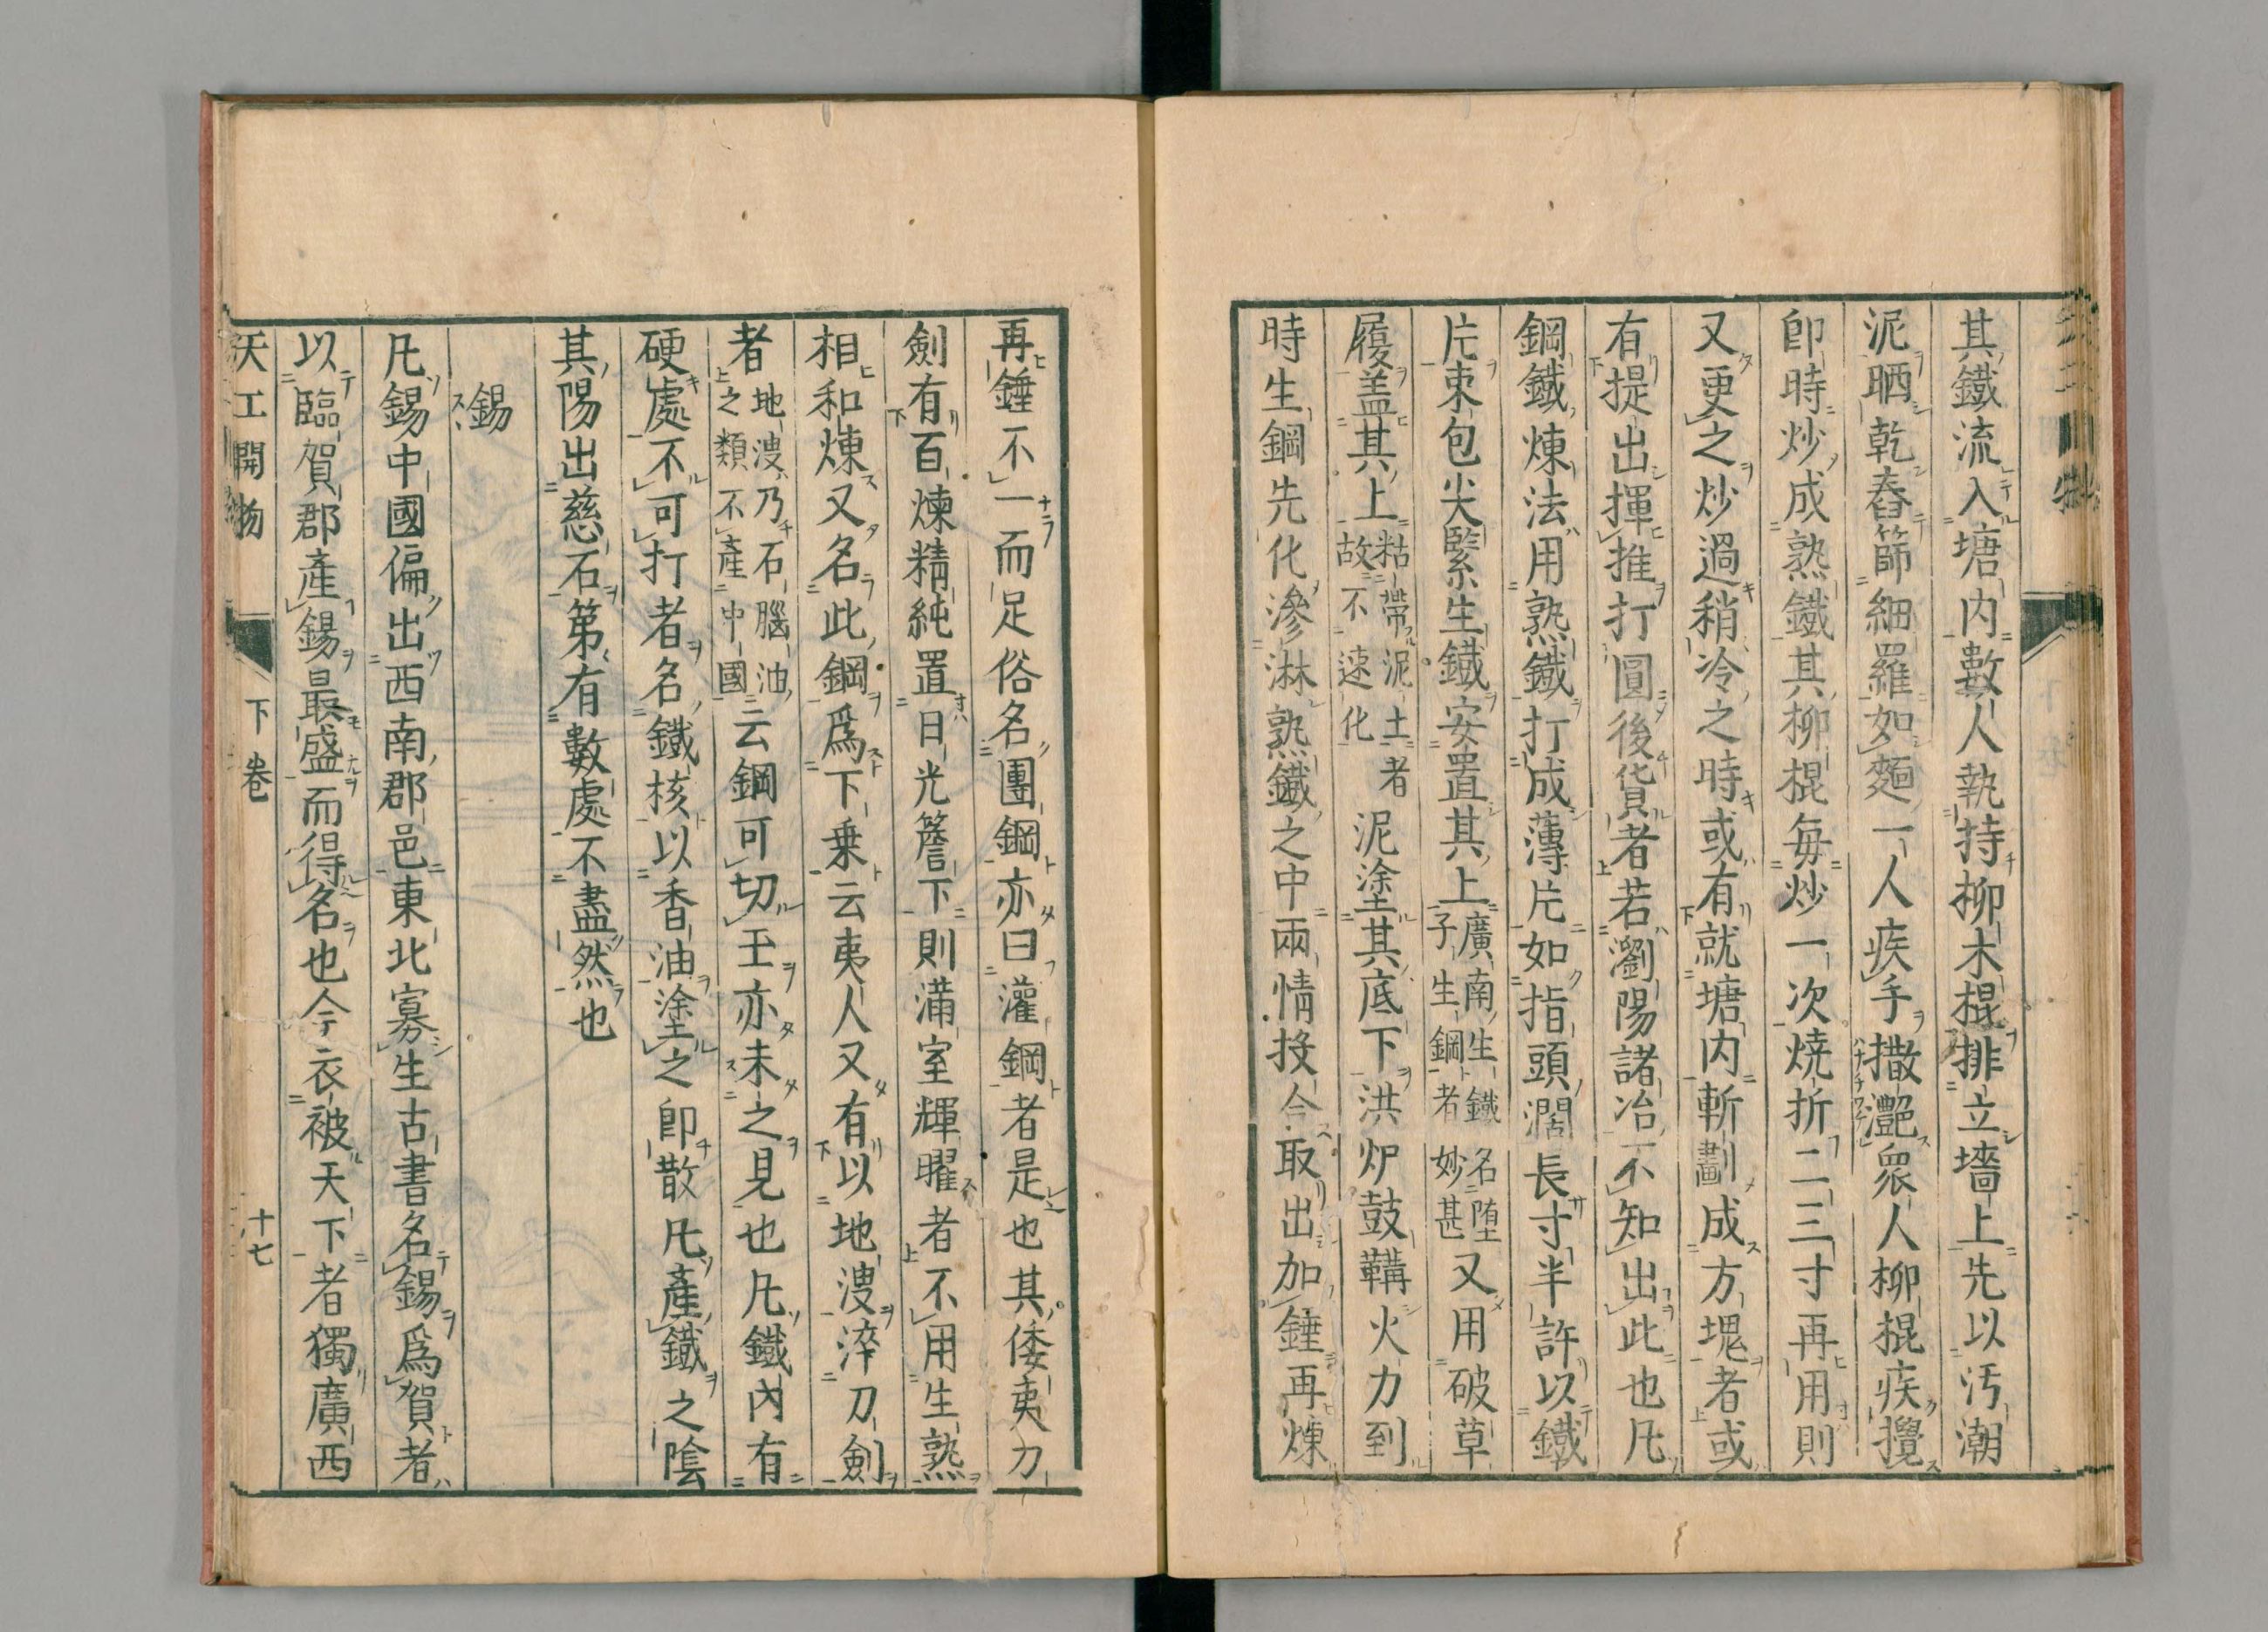 其鐵流入塘内數人執持柳木棍排立墻上先以汚潮
泥晒乾舂篩細羅如麵一人疾手撒灧衆人柳棍疾攪
卽時炒成熟鐵其柳棍毎炒一次燒折二三寸再用則
又更之炒過稍冷之時或有就塘内斬劃成方塊者或
有提出揮推打圓後貨者若瀏陽諸冶不知出此也凡
鋼鐵煉法用熟鐵打成薄片如指頭濶長寸半許以鐵
片束包尖緊生鐵安置其上廣南生鐵名堕子生鋼者妙甚又用破草
履盖其上粘帶泥土者故不速化泥塗其底下洪炉鼓鞲火力到
時生鋼先化滲淋熟鐵之中兩情投合取出加錘再煉
再錘不一而足俗名團鋼亦曰灌鋼者是也其倭夷刀
劍有百煉精純置日光簷下則滿室輝曜者不用生熟
相和煉又名此鋼爲下乗云夷人又有以地溲淬刀劍
者地溲乃石腦油之類不產中國云鋼可切玉亦未之見也凡鐵内有
硬處不可打者名鐵核以香油塗之卽散凡產鐵之陰
其陽出慈石第有數處不盡然也
錫
凡錫中國偏出西南郡邑東北寡生古書名錫爲賀者
以臨賀郡產錫最盛而得名也今衣被天下者獨廣西
天工開物 下卷 十七